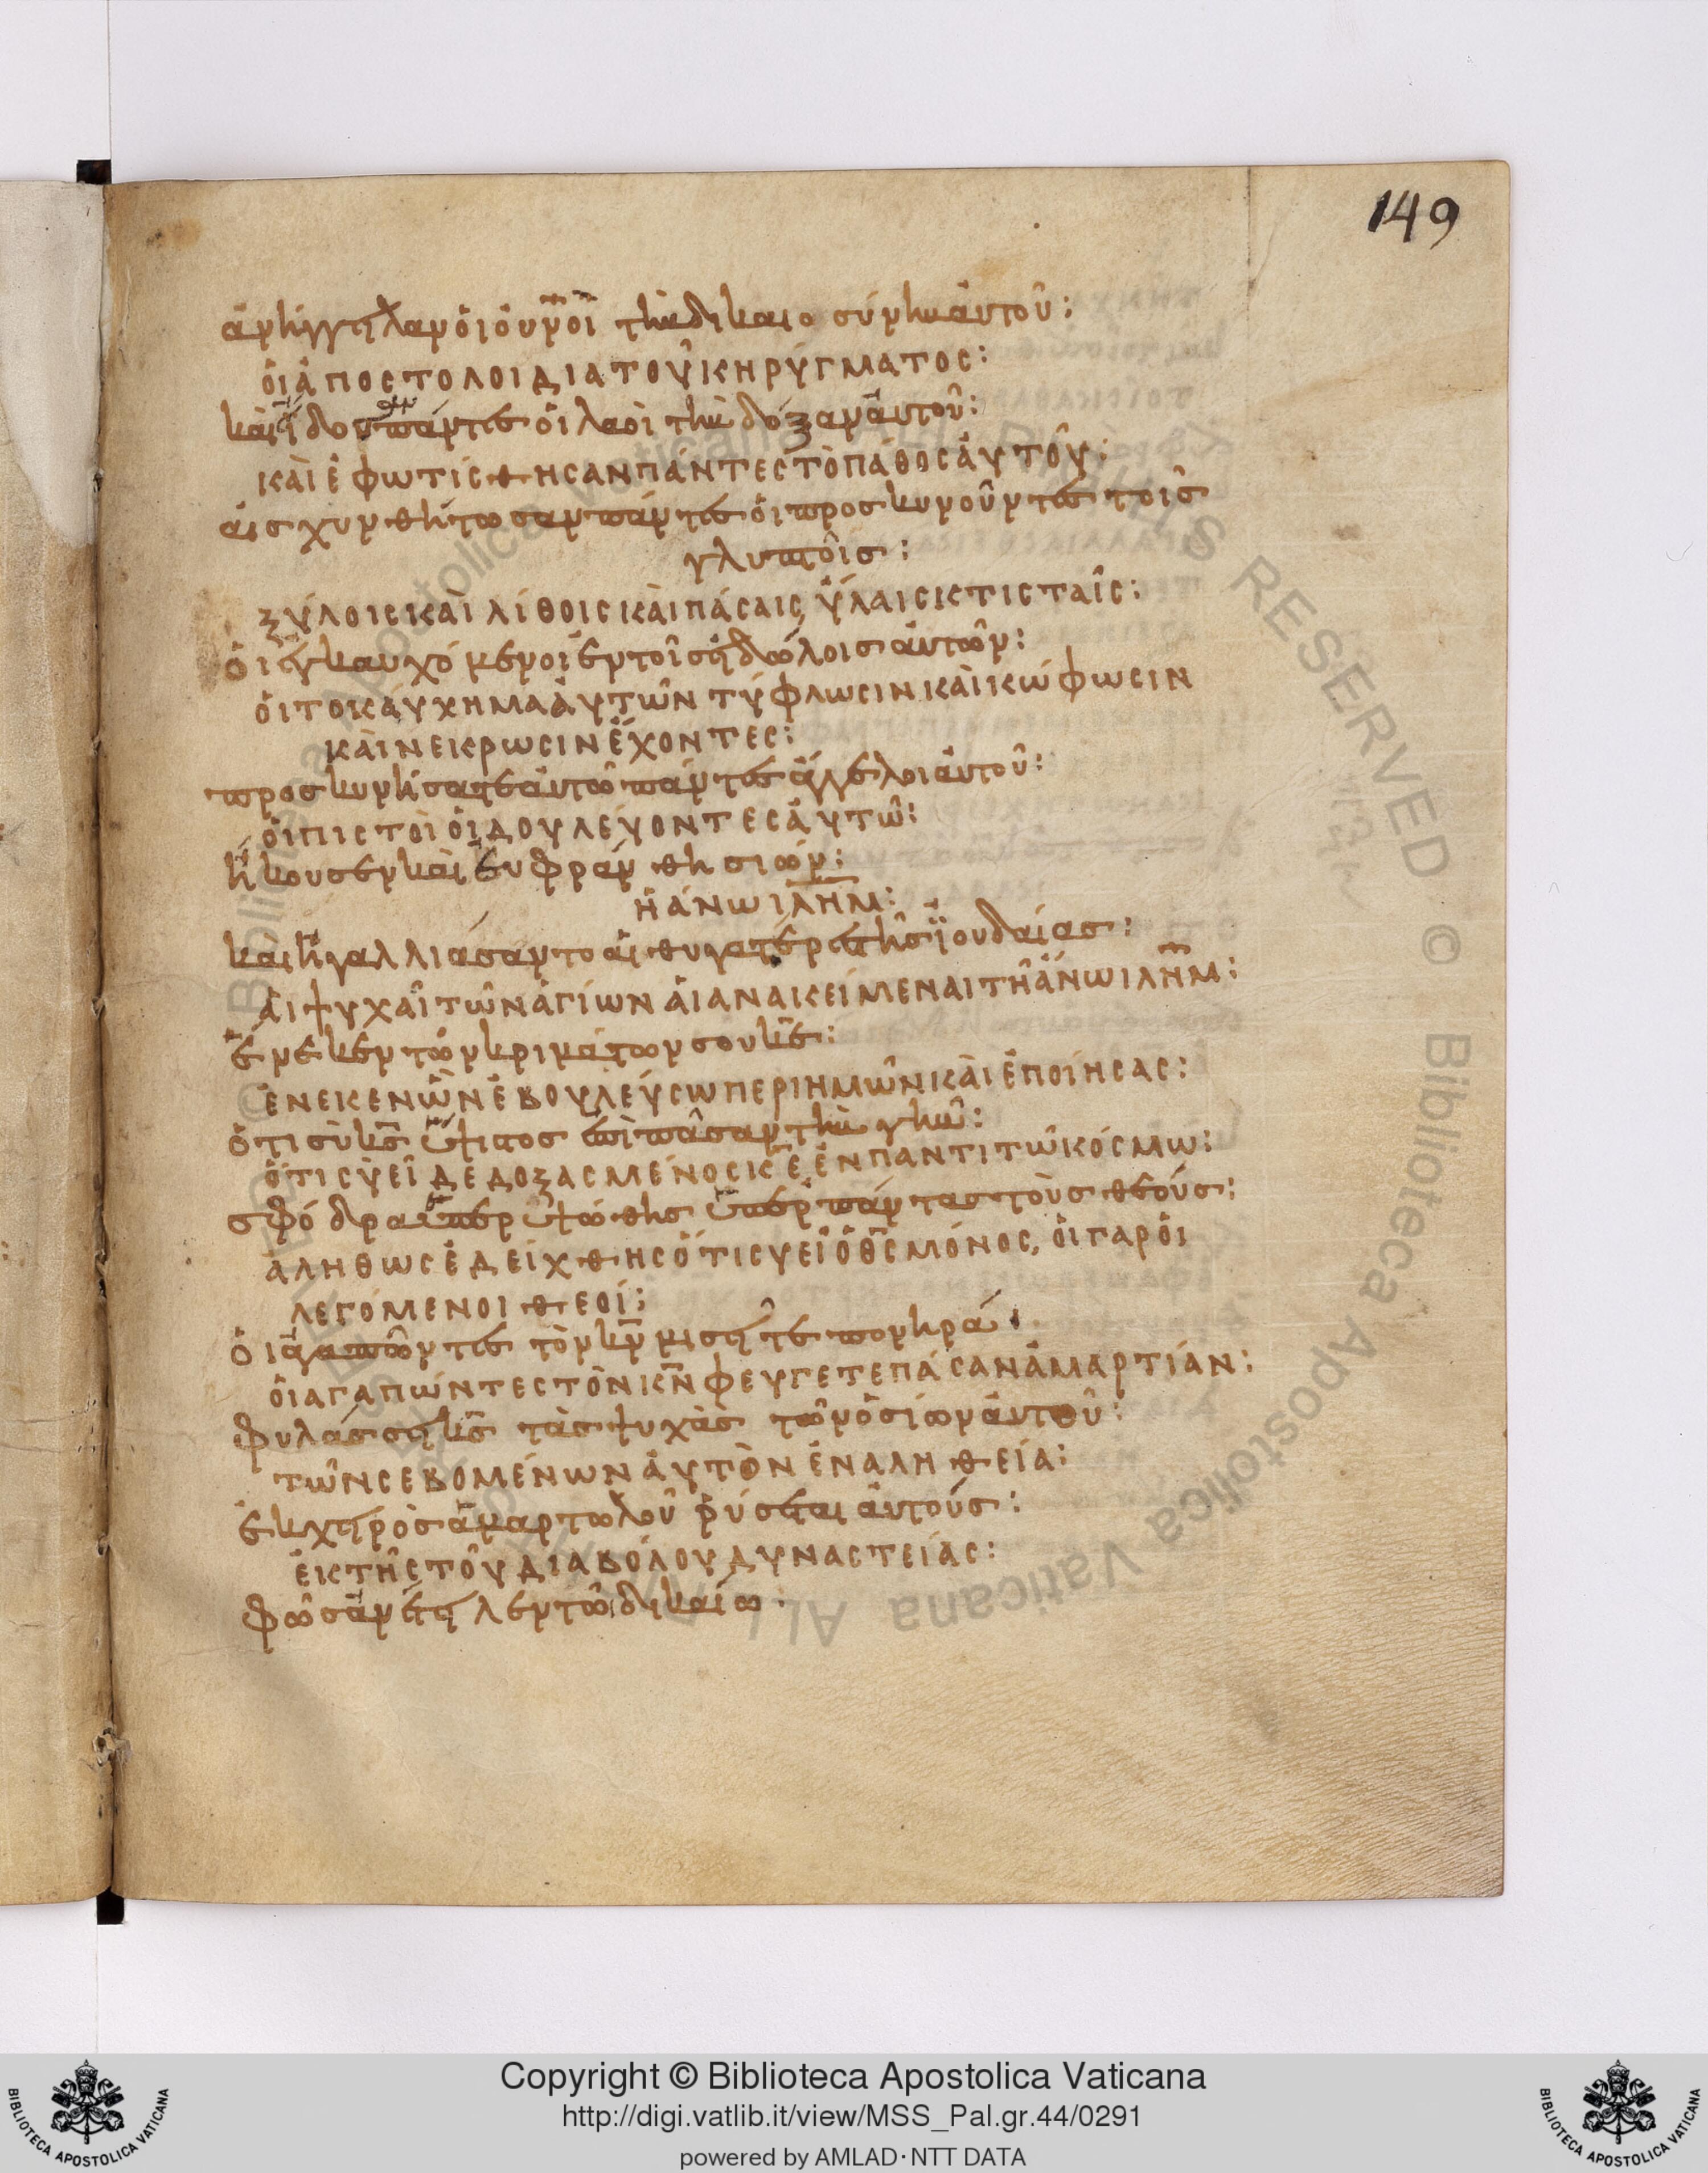 149
ἀνήγγειλαν ὁι ὀυν̅ο̅ι̅ τὴν δικαιοσύνην ἀυτοῦ:
ὁι ἀποστολοι δια τοῦ κηρύγματος:
κὰι ἴδοσαν πάντες ὁι λαὸι τὴν δόξαν ἀυτοῦ:
κὰι ἐφωτίσθησαν πάντες τὸ πάθος ἀυτοῦ:
ἀισχυνθήτωσαν πάντες ὁι προσκυνοῦντες τοῖς
γλυπτοῖς:
ξύλοις κὰι λίθοις κὰι πάσαις ὕλαις κτισταῖς:
ὁι ἐγκαυχόμενοι ἐν τοῖς ἐιδώλοις ἀυτῶν:
ὁι το κάυχημα ἀυτῶν τύφλωσιν κὰι κώφωσιν
κὰι νεκρωσιν ἔχοντες:
προσκυνήσατε ἀυτῶ πάντες ἄγγελοι ἀυτοῦ:
ὁι πιστοὶ ὁι δουλεύοντες ἀυτῶ:
ἤκουσεν κὰι ἐυφράνθη σιών:
ἡ ἄνω ιλ̅η̅μ̅:
και ἠγαλλιάσαντο ἁι θυγατέρες τῆς ϊουδαίας:
ἁι ψυχαῖ τῶν ἁγίων ἁι ανακείμεναι τῆ ἄνω ιλη̅μ:
ἕνεκεν τῶν κριμάτων σου κ̅ε̅:
ἕνεκεν ὧν ἐβουλεύσω περι ημῶν κὰι ἐποίησας:
ὅτι σὺ κ̅ς̅ ὕψιστος ἐπὶ πᾶσαν τὴν γῆν:
ὅτι σὺ εἶ δεδοξασμένος κ̅ε̅ ἐν παντι τῶ κόσμω:
σφόδρα ὑπερυψώθης ὑπὲρ πάντας τοὺς θεούς:
ἀληθως ἐδείχθης ὅτι συ εἶ ὁ θ̅ς̅ μόνος, ὁι γαρ ὁι
λεγόμενοι θεοί:
ὁι ἀγαπῶντες τὸν κ̅ν̅ μισεῖτε πονηρά:
ὁι αγαπώντες τὸν κ̅ν̅ φευγετε πάσαν ἁμαρτίαν:
φυλάσσει κ̅ς̅ τὰς ψυχὰς τῶν ὁσίων ἀυτοῦ:
τῶν σεβομένων ἀυτὸν ἐν αληθεία:
ἐκ χειρὸς ἁμαρτωλοῦ ῥύσεται ἀυτούς:
ἐκ τῆς τοῦ διαβόλου δυναστείας:
φῶς ἀνέτειλεν τῶ δικαίω:
Copyright © Biblioteca Apostolica Vaticana
http://digi.vatlib.it/view/MSS_Pal.gr.44/0291
powered by AMLAD·NTT DATA
BIBLIOTECA APOSTOLICA VATICANA
BIBLIOTECA APOSTOLICA VATICANA